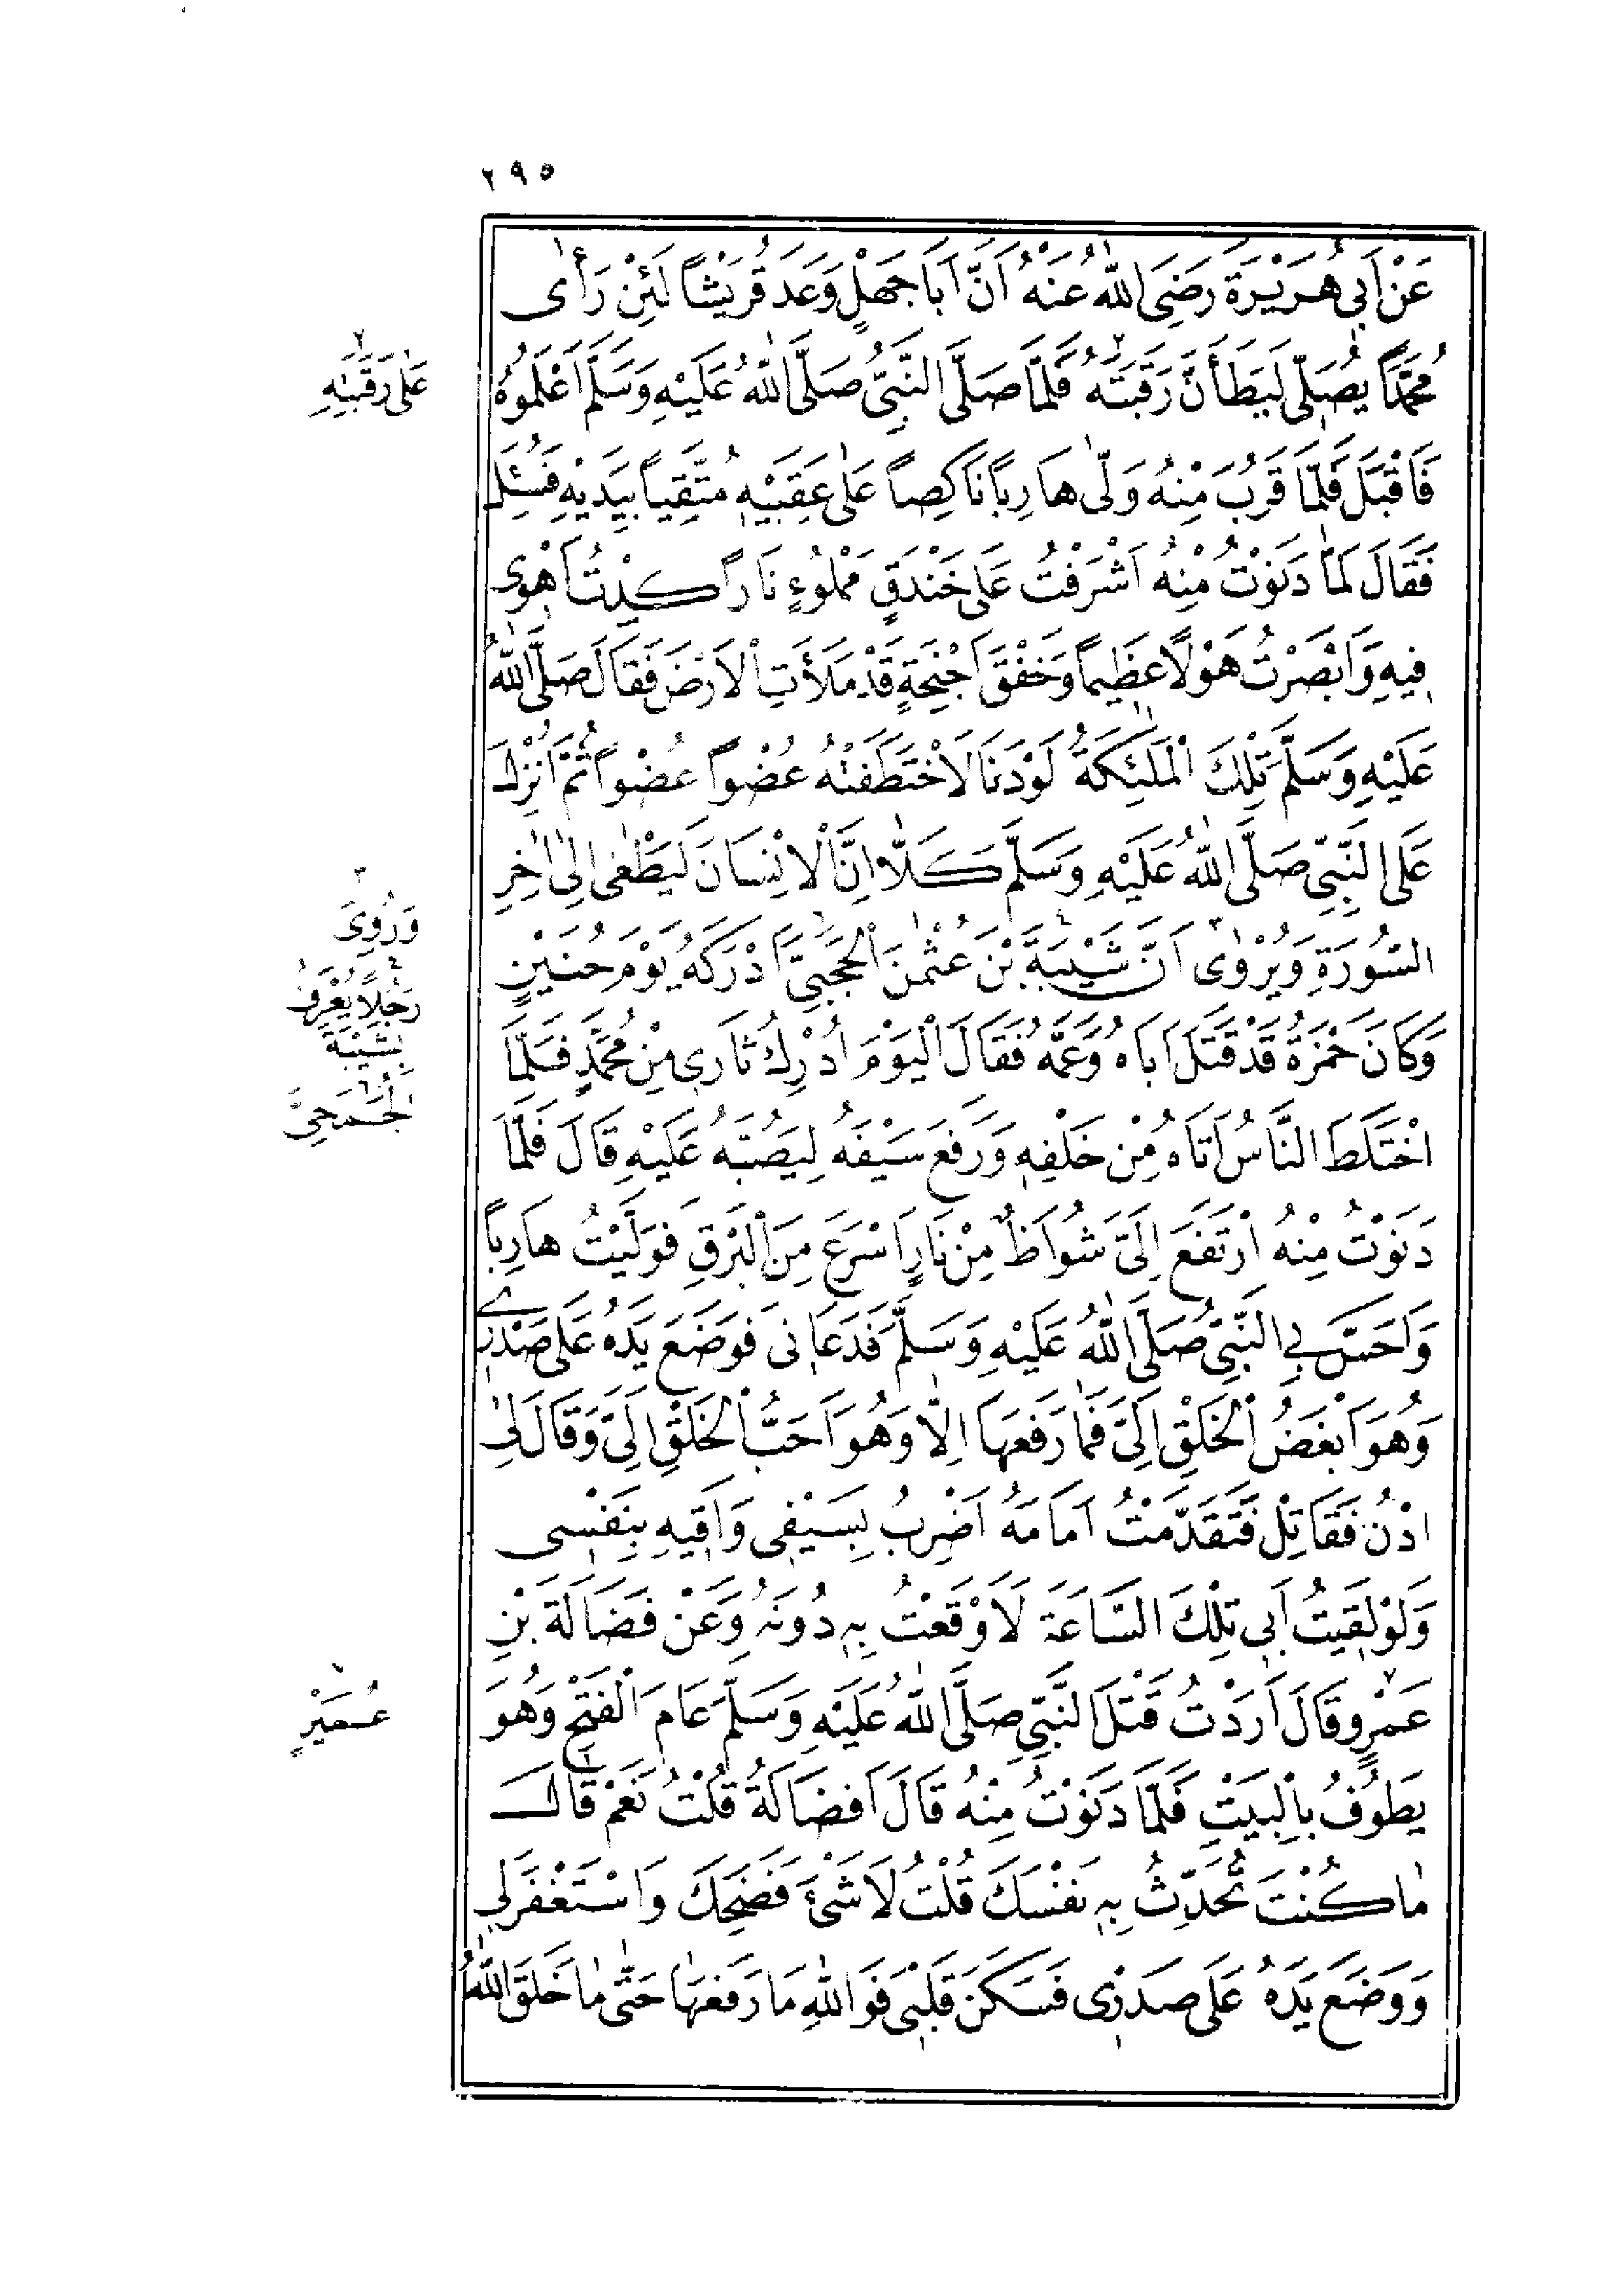 ٢٩٥
عَنْ اَبِى هُرَيْرَةَ رَضِىَ اللّٰهُ عَنْهُ اَنَّ اَبَا جَهْلٍ وَعَدَ قُرَيْشاً لَئِنْ رَأٰى
مُحَمَّدًا يُصَلِّى لَيَطَأَنَّ رَقَبَتَهُ فَلَمَّا صَلَّى النَّبِىُّ صَلَّى اللّٰهُ عَلَيْهِ وَسَلَّمَ اَعْلَمُوهُ
فَاَقْبَلَ فَلَمَّا قَرُبَ مِنْهُ وَلّٰى هَارِباً نَاكِصاً عَلٰى عَقِبَيْهِ مُتَّقِياً بِيَدَيْهِ فَسُئِلَ
فَقَالَ لَمَّا دَنَوْتُ مِنْهُ اَشْرَفْتُ عَلٰى خَنْدَقٍ مَمْلُوءٍ نَاراً كِدْتُ اَهْوِى
فِيهِ وَاَبْصَرْتُ هَوْلاً عَظِيماً وَخَفْقَ اَجْنِحَةٍ قَدْ مَلَأَتِ الْاَرْضَ فَقَالَ صَلَّى اللّٰهُ
عَلَيْهِ وَسَلَّمَ تِلْكَ الْمَلٰئِكَةُ لَوْ دَنَا لَاخْتَطَفَتْهُ عُضْواً عُضْواً ثُمَّ اُنْزِلَ
عَلَى النَّبِىِّ صَلَّى اللّٰهُ عَلَيْهِ وَسَلَّمَ كَلَّا اِنَّ الْاِنْسَانَ لَيَطْغٰى اِلٰى اٰخِرِ
السُّورَةِ وَيُرْوٰى اَنَّ شَيْبَةَ بْنَ عُثْمٰنَ الْحَجَبِىَّ اَدْرَكَهُ يَوْمَ حُنَيْنٍ
وَكَانَ حَمْزَةُ قَدْ قَتَلَ اَبَاهُ وَعَمَّهُ فَقَالَ الْيَوْمَ اُدْرِكُ ثَارِى مِنْ مُحَمَّدٍ فَلَمَّا
اخْتَلَطَ النَّاسُ اَتَاهُ مِنْ خَلْفِهِ وَرَفَعَ سَيْفَهُ لِيَصُبَّهُ عَلَيْهِ قَالَ فَلَمَّا
دَنَوْتُ مِنْهُ ارْتَفَعَ اِلَىَّ شُوَاظٌ مِنْ نَارٍ اَسْرَعَ مِنَ الْبَرْقِ فَوَلَّيْتُ هَارِباً
وَاَحَسَّ بِى النَّبِىُّ صَلَّى اللّٰهُ عَلَيْهِ وَسَلَّمَ فَدَعَانِى فَوَضَعَ يَدَهُ عَلٰى صَدْرِى
وَهُوَ اَبْغَضُ الْخَلْقِ اِلَىَّ فَمَا رَفَعَهَا اِلَّا وَهُوَ اَحَبُّ الْخَلْقِ اِلَىَّ وَقَالَ لِى
ادْنُ فَقَاتِلْ فَتَقَدَّمْتُ اَمَامَهُ اَضْرِبُ بِسَيْفِى وَاَقِيهِ بِنَفْسِى
وَلَوْ لَقِيتُ اَبِى تِلْكَ السَّاعَةَ لَاَوْقَعْتُ بِهِ دُونَهُ وَعَنْ فَضَالَةَ بْنِ
عَمْرٍو قَالَ اَرَدْتُ قَتْلَ النَّبِىِّ صَلَّى اللّٰهُ عَلَيْهِ وَسَلَّمَ عَامَ الْفَتْحِ وَهُوَ
يَطُوفُ بِالْبَيْتِ فَلَمَّا دَنَوْتُ مِنْهُ قَالَ اَفَضَالَةُ قُلْتُ نَعَمْ قَالَ
مَا كُنْتَ تُحَدِّثُ بِهِ نَفْسَكَ قُلْتُ لَا شَىْءَ فَضَحِكَ وَاسْتَغْفَرَ لِى
وَوَضَعَ يَدَهُ عَلٰى صَدْرِى فَسَكَنَ قَلْبِى فَوَاللّٰهِ مَا رَفَعَهَا حَتّٰى مَا خَلَقَ اللّٰهُ
٢
عَلٰى رَقَبَتِهِ
٣
وَرُوِىَ
٤
رَجُلاً يُعْرَفُ
بِشَيْبَةَ
٦
الْجُمَحِىَّ
٧
عُمَيْرٍ